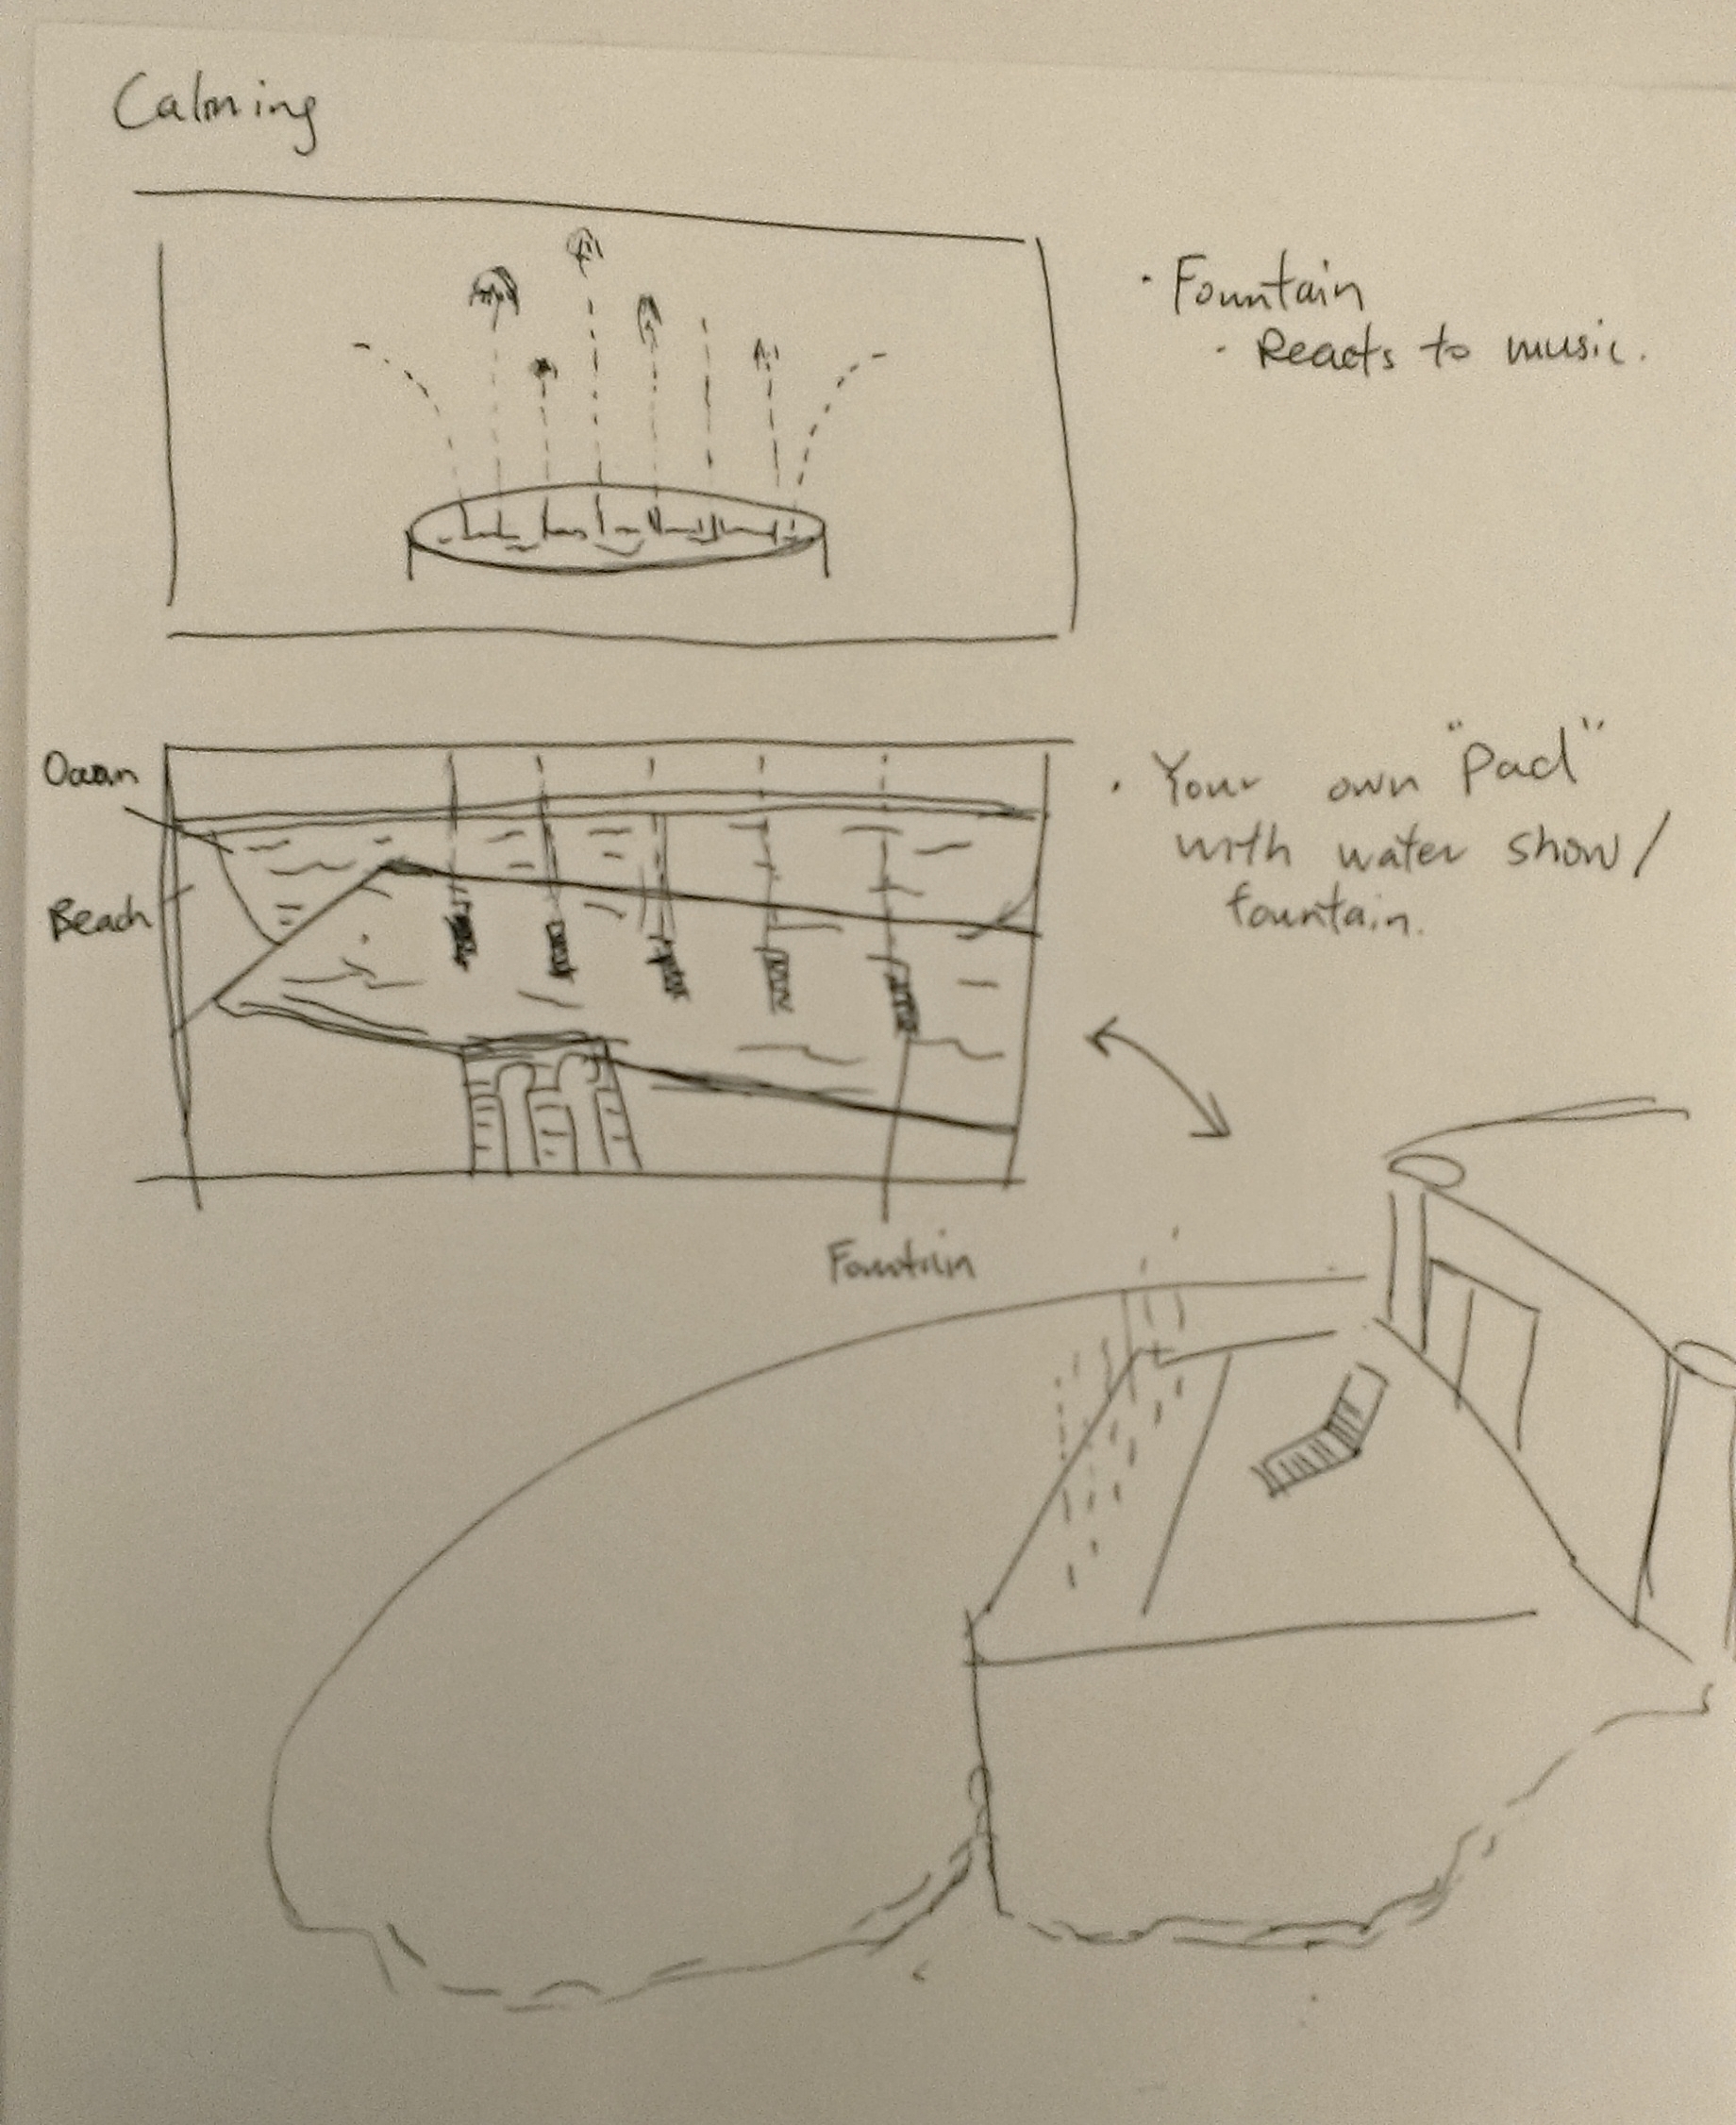 Calming
· Fountain
· Reacts to music.
Ocean
Beach
· Your own "Pad"
with water show/
fountain.
Fountain